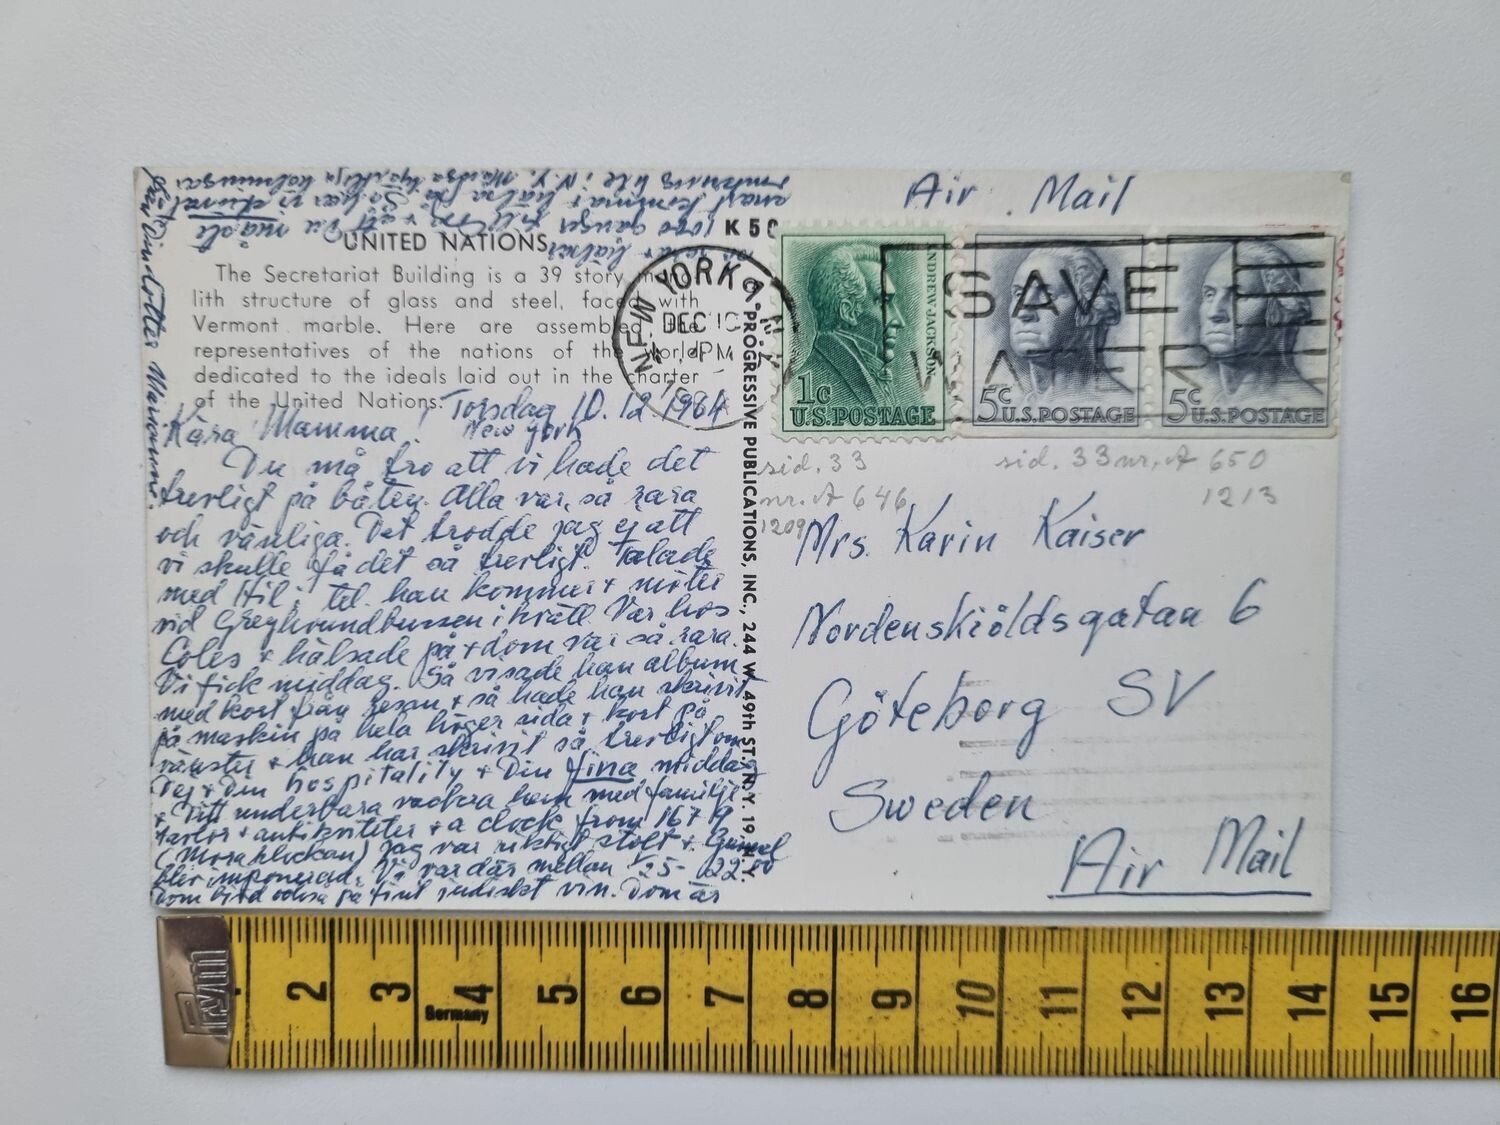 Air Mail
K50
UNITED NATIONS
The Secretariat Building is a 39 story mono-
lith structure of glass and steel, faced with
Vermont marble. Here are assembled the
representatives of the nations of the world
dedicated to the ideals laid out in the charter
of the United Nations.
Torsdag 10.12 1964
New York
Kära Mamma!
Du må tro att vi hade det
trevligt på båten. Alla var så rara
och vänliga. Det trodde jag ej att
vi skulle få det så trevligt. Talade
med Hil i tel. han kommer + möter
vid Greyhoundbussen ikväll. Var hos
Coles + hälsade på + dom var så rara.
Vi fick middag. Så visade han album
med kort från resan + så hade han skrivit
på maskin på hela höger sida + kort på
vänster + han har skrivit så trevligt om
Dej + Din hospitality + Din fina middag
+ Ditt underbara vackra hem med familje-
tavlor + antikviteter + a clock from 1679
(Moraklockan) Jag var riktigt stolt +
blev imponerad. Vi var där mellan
Dom bjöd också på fint vin. Dom är
1000 gånger
Din dotter Marianne
© PROGRESSIVE PUBLICATIONS, INC., 244 W. 49th ST., N.Y. 19, N. Y.
NEW YORK
DEC 10
PM
SAVE
WATER
ANDREW JACKSON
1c
U.S. POSTAGE
5c U.S. POSTAGE
5c U.S. POSTAGE
sid. 33
nr. A 646
1209
sid. 33 nr. A 650
1213
Mrs. Karin Kaiser
Nordenskiöldsgatan 6
Göteborg SV
Sweden
Air Mail
Prym
Germany
2 3 4 5 6 7 8 9 10 11 12 13 14 15 16